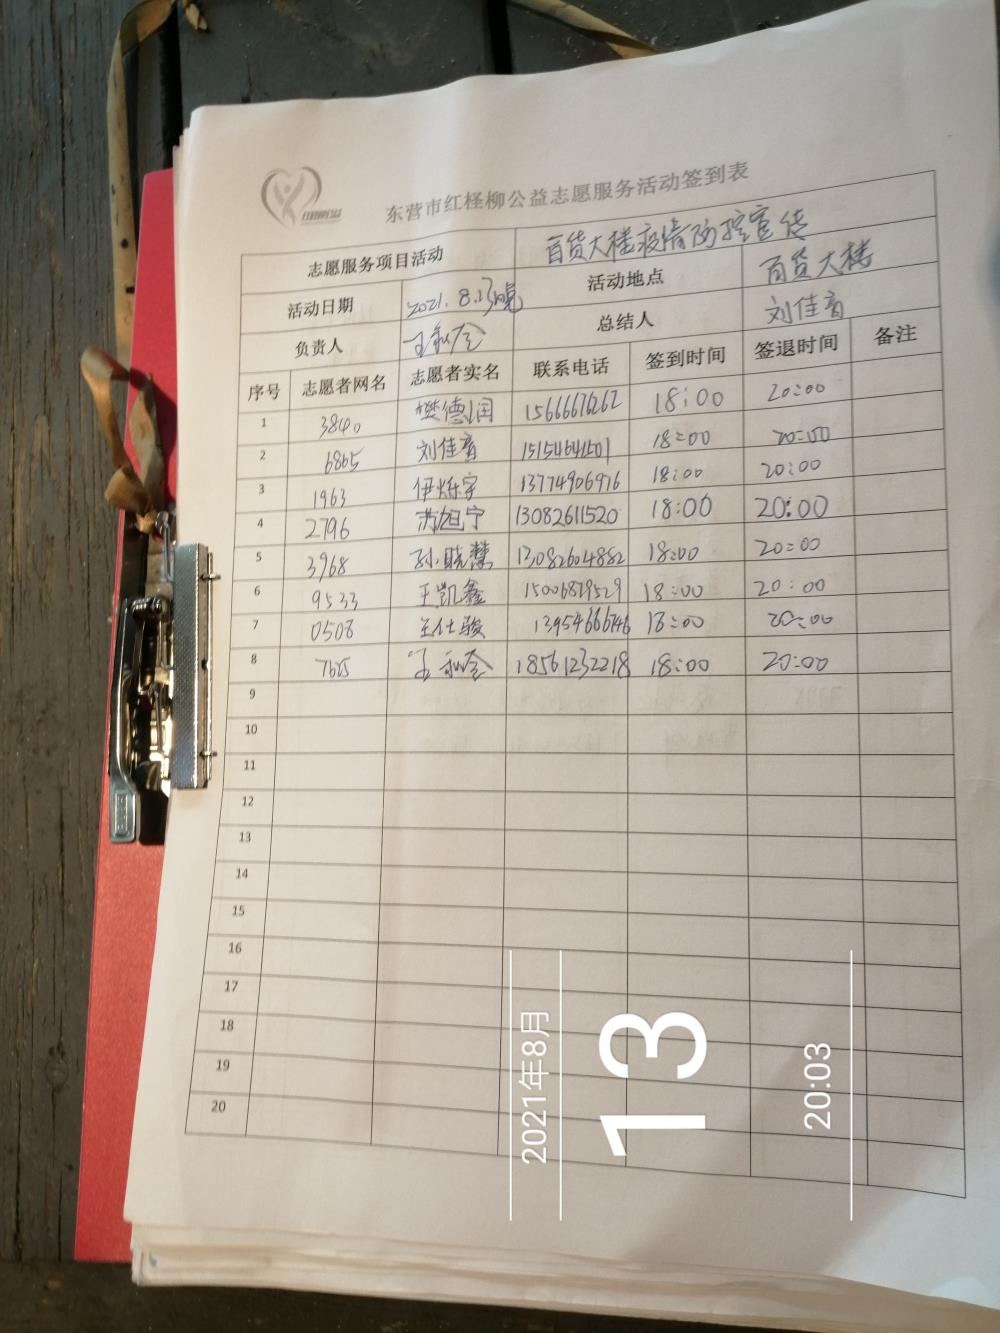 东营市红柽柳公益志愿服务活动签到表
志愿服务项目活动 百货大楼疫情防控宣传
活动日期 2021.8.13晚 活动地点 百货大楼
负责人 总结人 刘佳音
序号 志愿者网名 志愿者实名 联系电话 签到时间 签退时间 备注
1 3840 樊德润 15666676262 18:00 20:00
2 6865 刘佳音 18:00 20:00
3 1963 伊烁宇 13774906976 18:00 20:00
4 2796 旭宁 13082611520 18:00 20:00
5 3968 孙晓慧 13082604882 18:00 20:00
6 9533 王凯鑫 15006879529 18:00 20:00
7 0508 王仕骏 13954666746 18:00 20:00
8 7605 18561232218 18:00 20:00
9
10
11
12
13
14
15
16
17
18
19
20
2021年8月
13
20:03